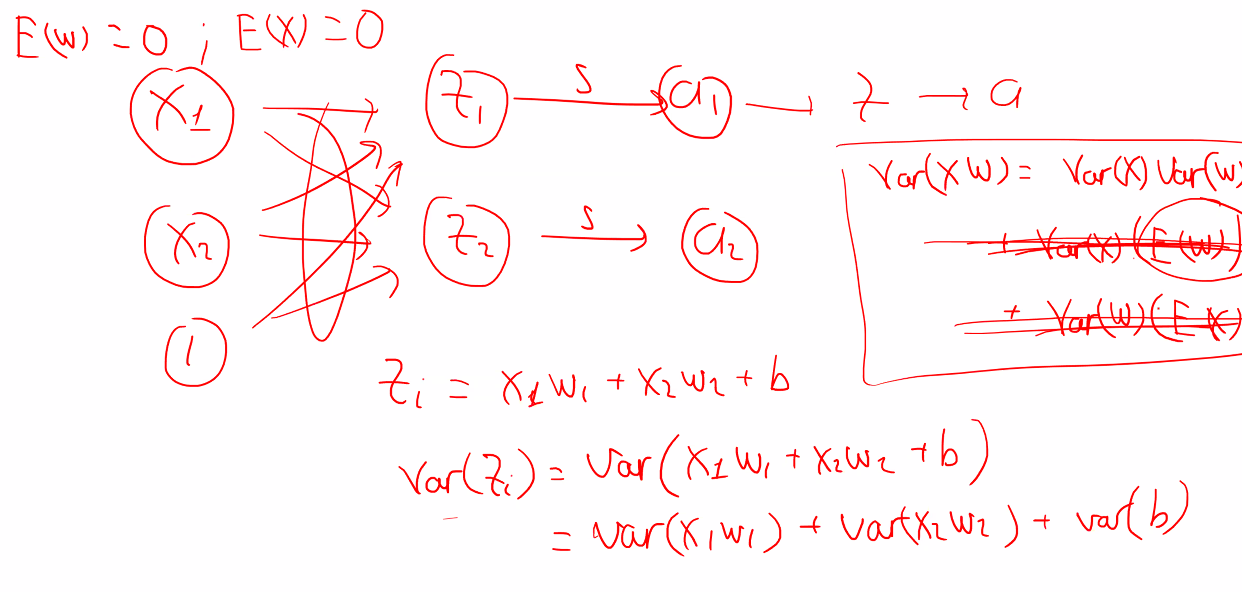 E(W) = 0 ; E(X) = 0
X1 Z1 S a1 → Z → a
X2 Z2 S a2
1
Var(XW) = Var(X) Var(W)
+ Var(X) (E(W))
+ Var(W) (E(X)
Zi = X1W1 + X2W2 + b
Var(Zi) = Var(X1W1 + X2W2 + b)
= Var(X1W1) + Var(X2W2) + var(b)